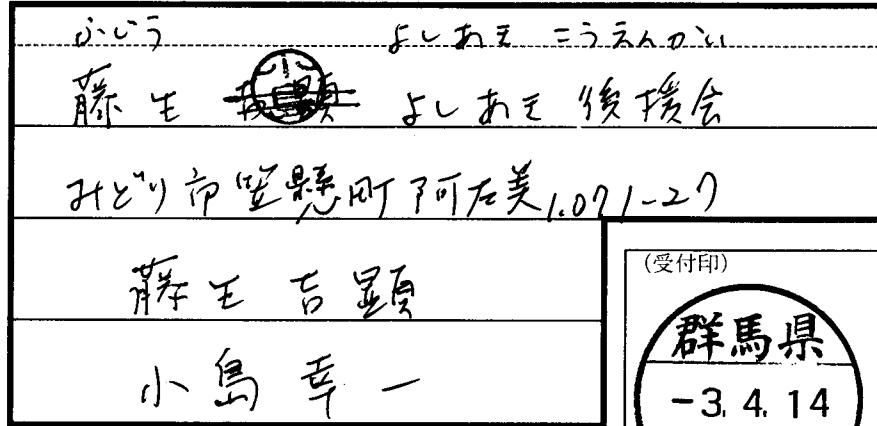 ふじう よしあき こうえんかい
藤生 吉顕 よしあき 後援会
みどり市笠懸町阿左美1.071-27
藤生 吉顕
小島 幸一
(受付印)
群馬県
-3.4.14